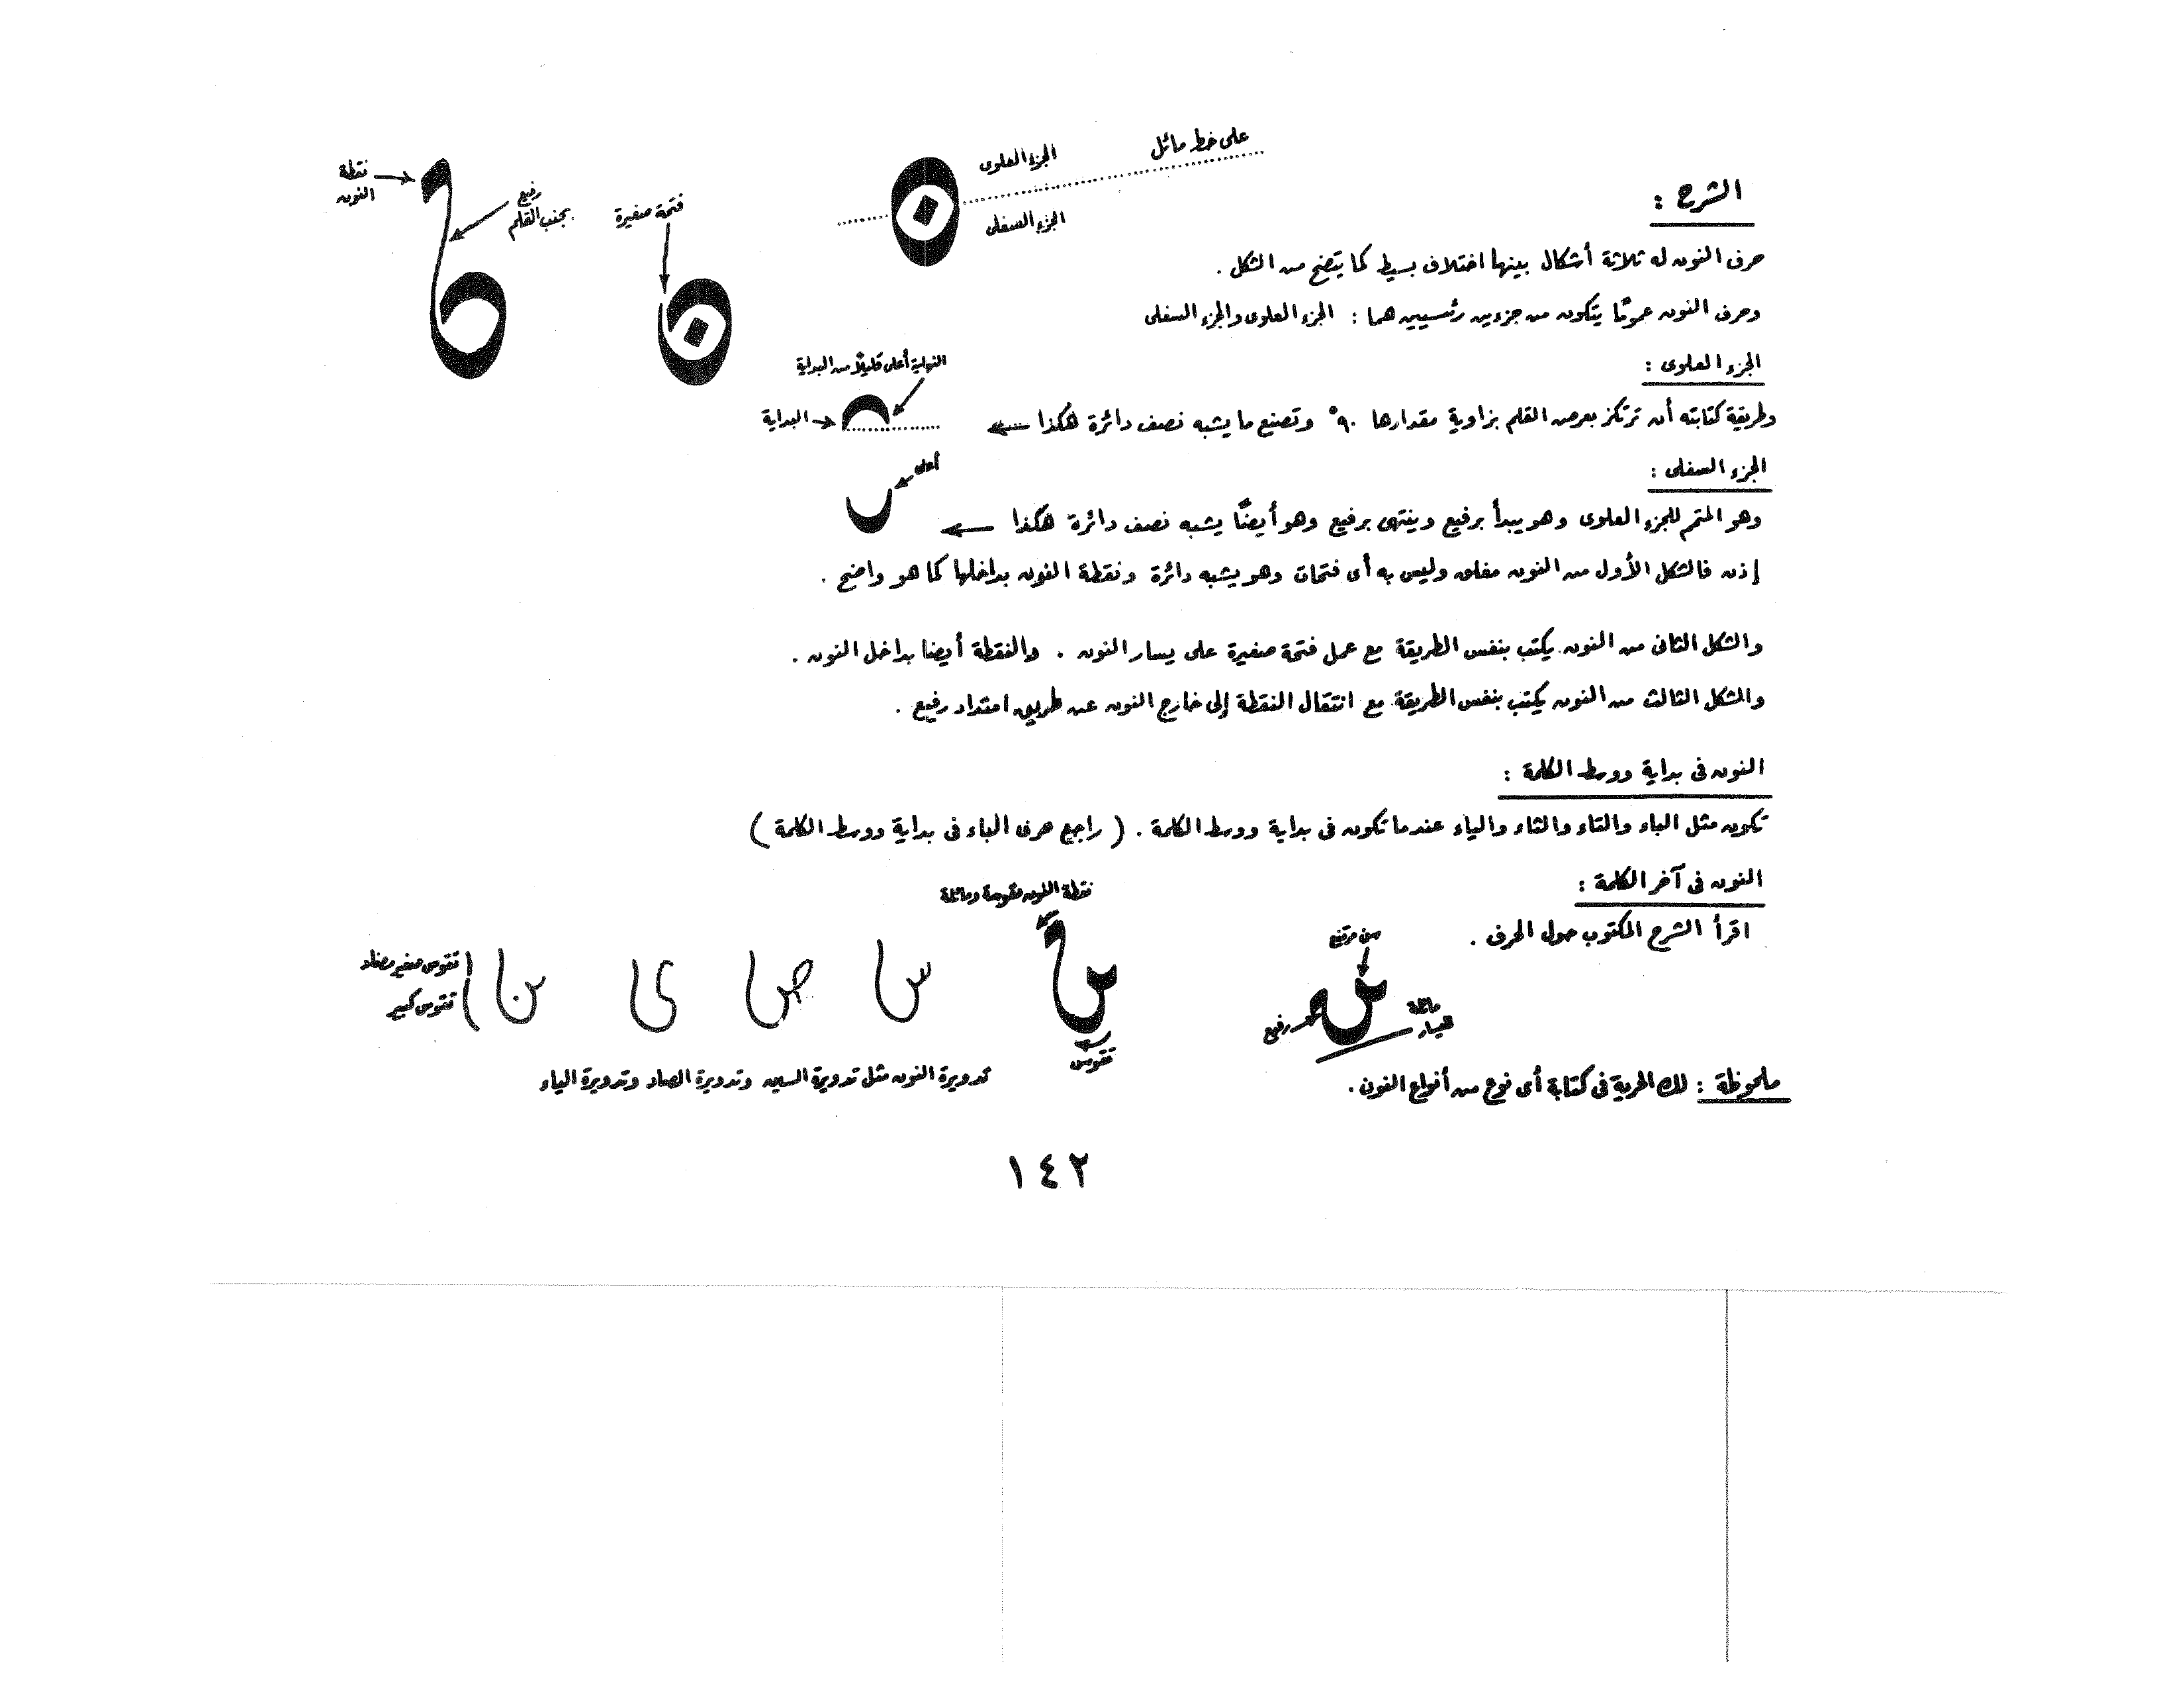 على خط مائل
الجزء العلوى
الجزء السفلى
فتحة صغيرة
نقطة
النون
رفيع
بجنب القلم
الشرح :
حرف النون له ثلاثة أشكال بينها اختلاف بسيط كما يتضح من الشكل .
وحرف النون عمومًا يتكون من جزءين رئسيين هما : الجزء العلوى والجزء السفلى
الجزء العلوى :
النهاية أعلى قليلًا من البداية
وطريقة كتابته أن ترتكز بعرض القلم بزاوية مقدارها ٩٠° وتصنع ما يشبه نصف دائرة هكذا
البداية
الجزء السفلى :
أعلى
وهو المتمم للجزء العلوى وهو يبدأ برفيع وينتهى برفيع وهو أيضًا يشبه نصف دائرة هكذا
إذن فالشكل الأول من النون مغلق وليس به أى فتحات وهو يشبه دائرة ونقطة النون بداخلها كما هو واضح .
والشكل الثانى من النون يكتب بنفس الطريقة مع عمل فتحة صغيرة على يسار النون . والنقطة أيضا بداخل النون .
والشكل الثالث من النون يكتب بنفس الطريقة مع انتقال النقطة إلى خارج النون عن طريق امتداد رفيع .
النون فى بداية ووسط الكلمة :
تكون مثل الباء والتاء والثاء والياء عندما تكون فى بداية ووسط الكلمة . ( راجع حرف الباء فى بداية ووسط الكلمة )
النون فى آخر الكلمة :
اقرأ الشرح المكتوب حول الحرف .
سن مرتفع
مائلة
لليسار
رفيع
نقطة النون مقوسة ومائلة
تقوس
س ص ى ن
تقوس صغير مضاد
تقوس كبير
تدويرة النون مثل تدويرة السين وتدويرة الصاد وتدويرة الياء
ملحوظة : لك الحرية فى كتابة أى نوع من أنواع النون .
١٤٢